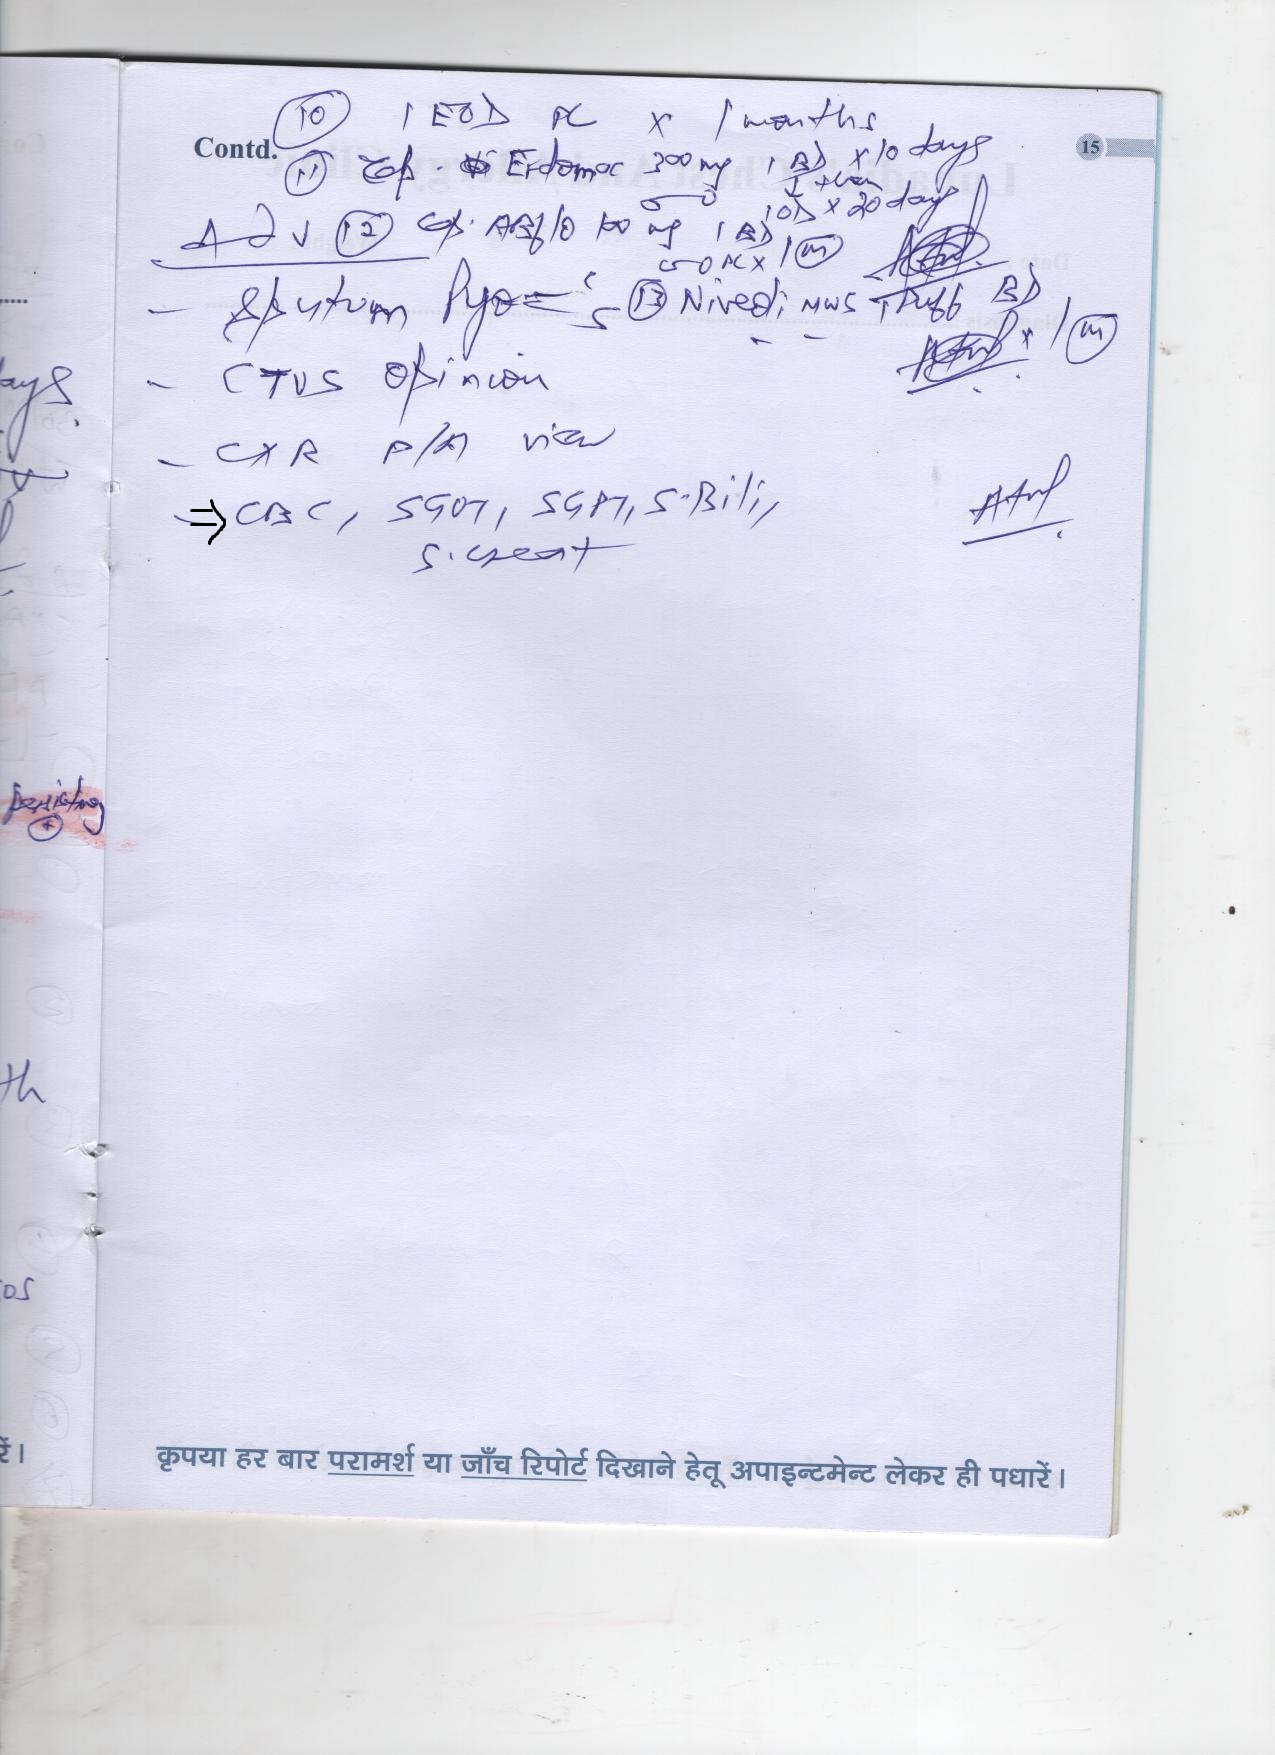 10 1 EOD PC x 1 months
Contd.
15
11 Cap. Erdomac 300 mg 1 BD x 10 days
↓ then
1 OD x 20 days
Adv 12 Cap. ABflo 100 mg 1 BD
PC x 1 m
- Sputum Pyo c/s 13 1 Puff BD
x 1 m
- CTVS opinion
- CXR P/A view
⇒ CBC, SGOT, SGPT, S. Bili,
S. creat
ays.
persisting
+
th
रें।
कृपया हर बार परामर्श या जाँच रिपोर्ट दिखाने हेतू अपाइन्टमेन्ट लेकर ही पधारें।